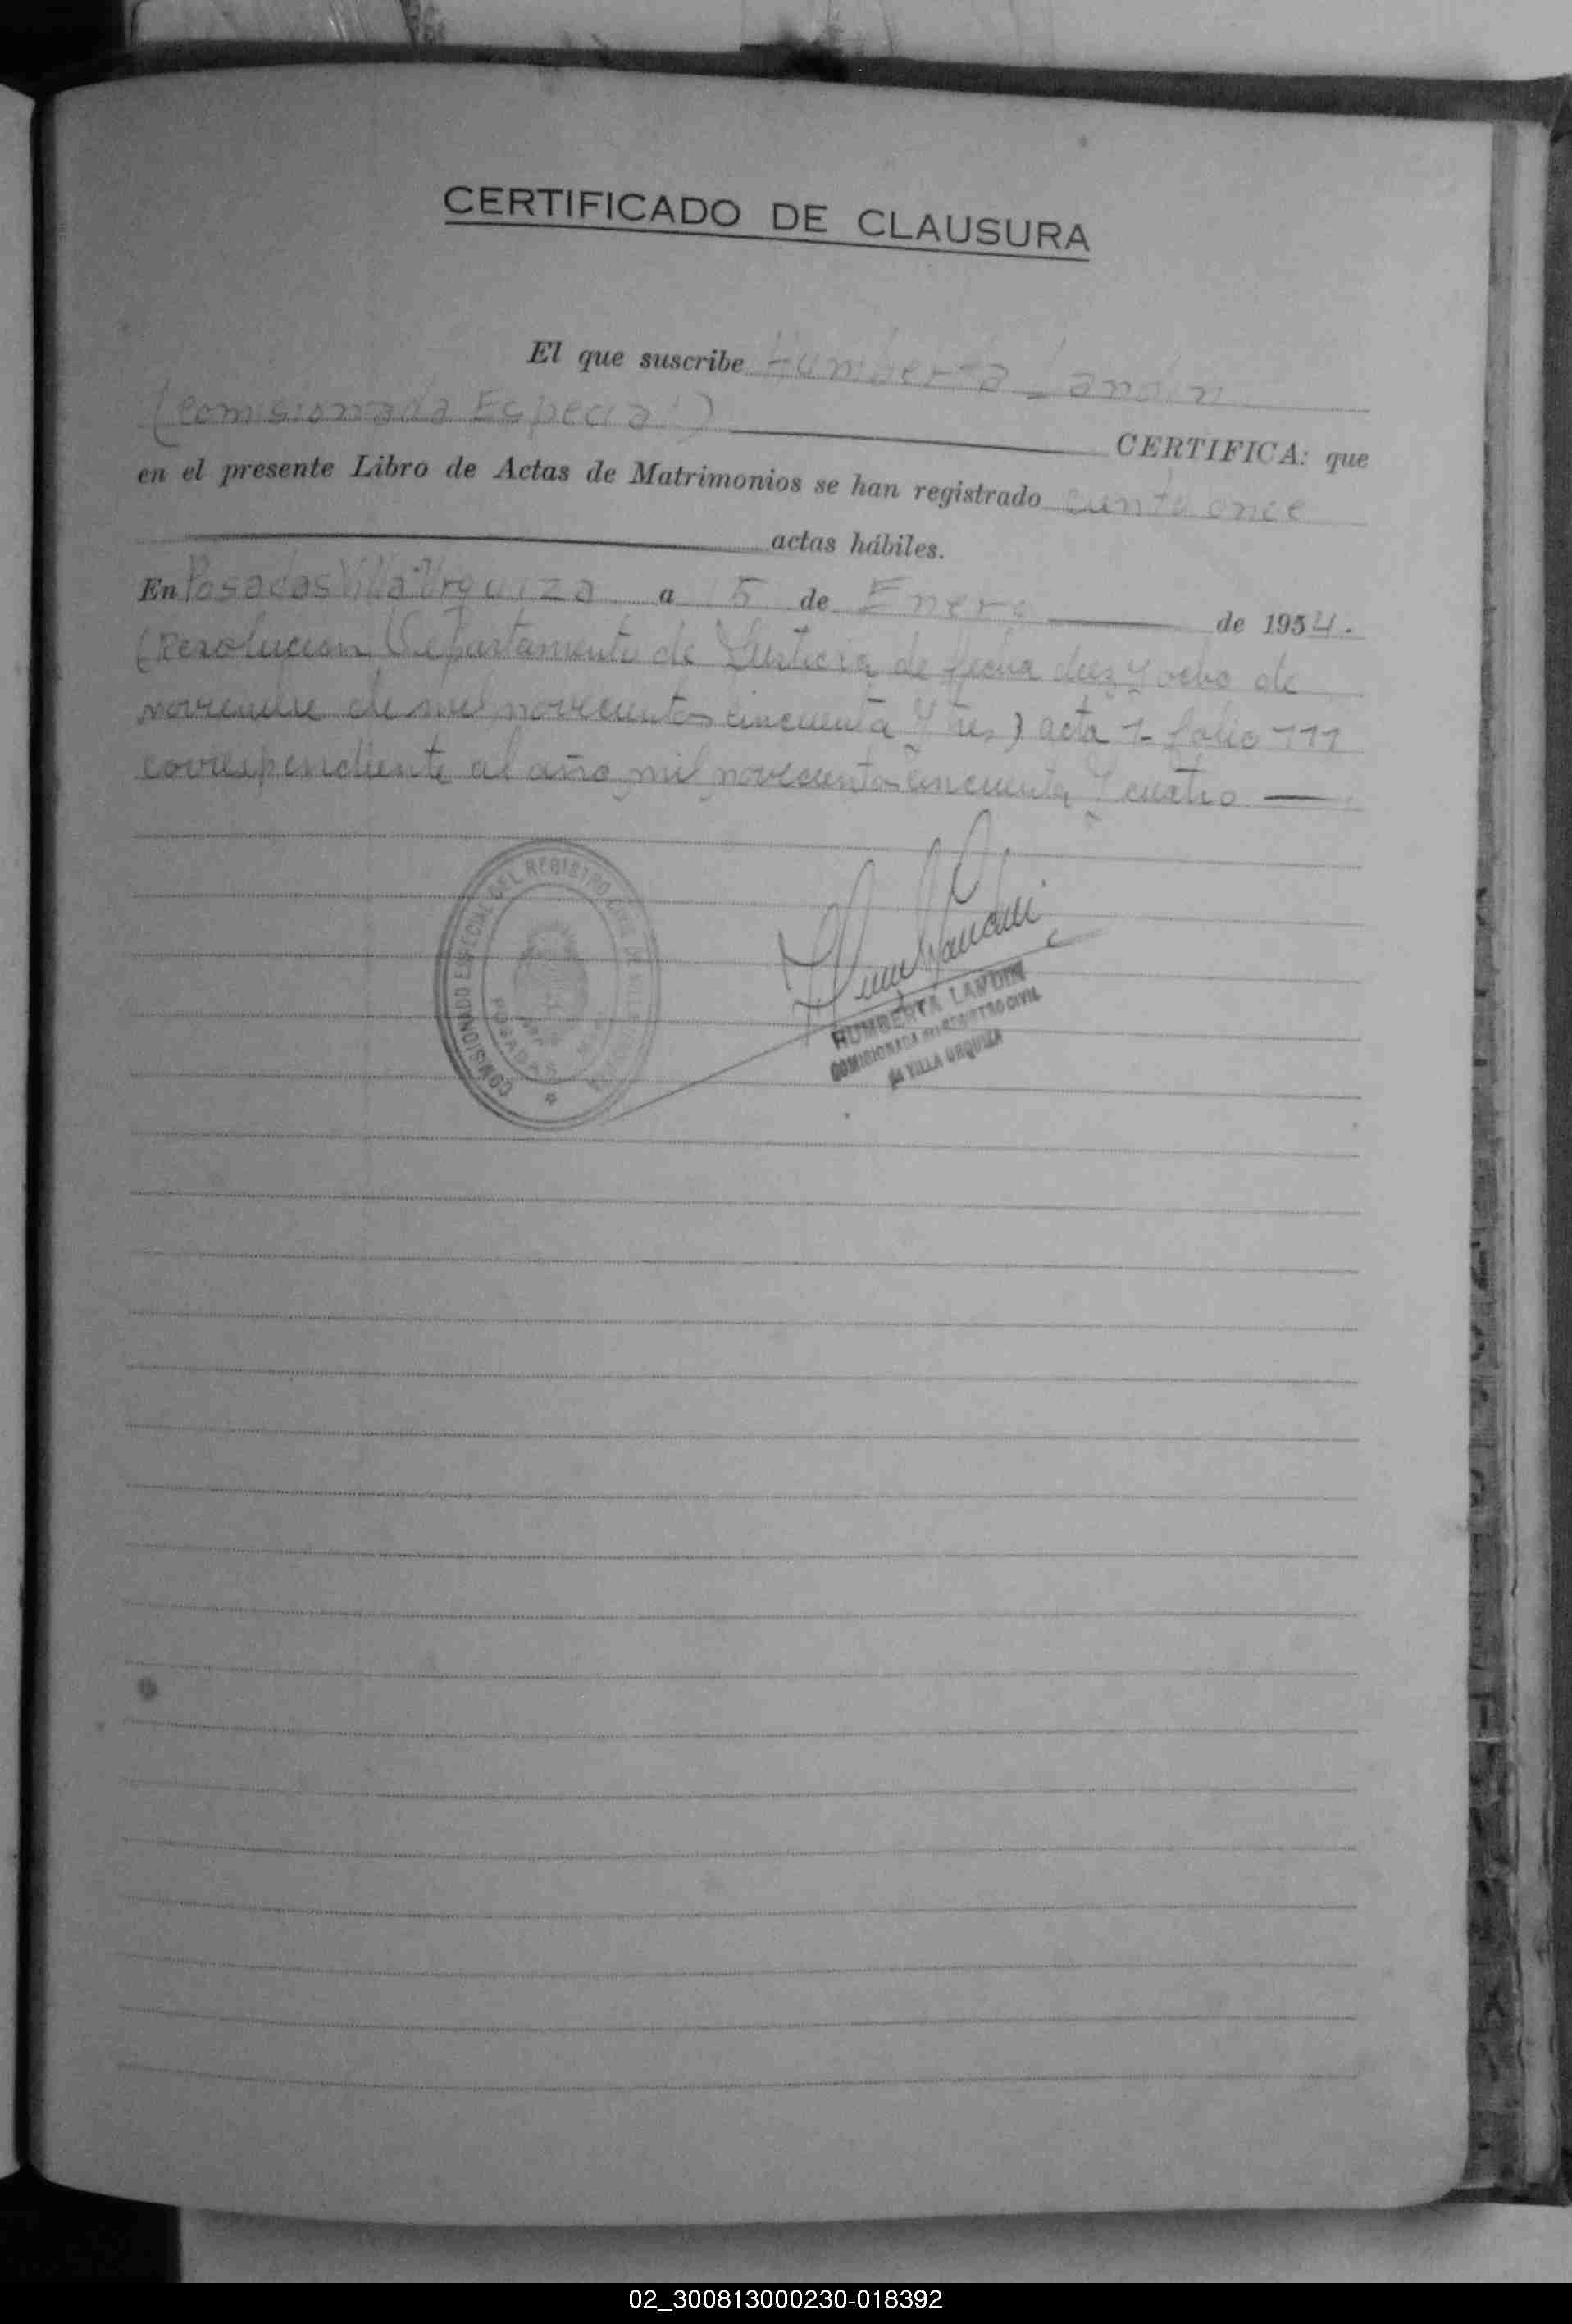 CERTIFICADO DE CLAUSURA
El que suscribe Humberta Landin
(Comisionada Especial) CERTIFICA: que
en el presente Libro de Actas de Matrimonios se han registrado ciento once
actas hábiles.
En Posadas Villa Urquiza a 5 de Enero de 1954.
(Resolucion Departamento de Justicia de fecha diez y ocho de
noviembre de mil novecientos cincuenta y tres) acta 1- folio 111
correspondiente al año mil novecientos cincuenta y cuatro
COMISIONADO ESPECIAL DEL REGISTRO CIVIL DE VILLA
POSADAS
HUMBERTA LANDIN
COMISIONADA DEL REGISTRO CIVIL
DE VILLA URQUIZA
02_300813000230-018392